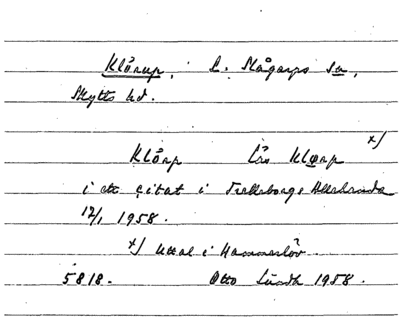 Klörup, L. Slågarps sn,
Skytts hd.
Klörp Lis Klørp x)
i ett citat i Trelleborgs Allehanda
12/1 1958.
x) Uttal i Hammarlöv
5818. Otto Lundh 1958.